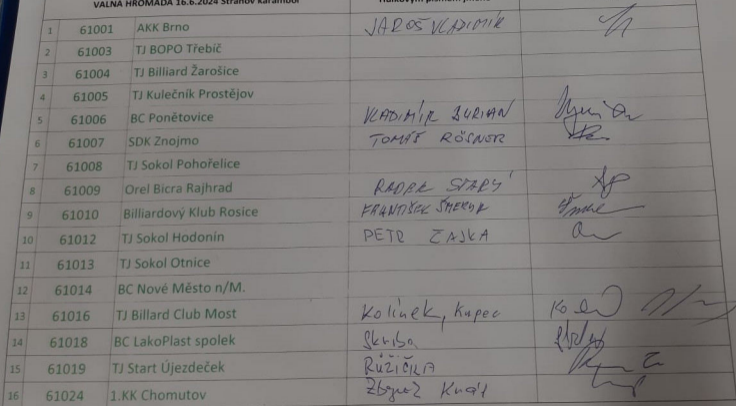 VALNÁ HROMADA 16.6.2024 Stránov karambol
1 61001 AKK Brno JAROŠ VLADIMÍR
2 61003 TJ BOPO Třebíč
3 61004 TJ Billiard Žarošice
4 61005 TJ Kulečník Prostějov
5 61006 BC Ponětovice VLADIMÍR BURIAN
6 61007 SDK Znojmo TOMÁŠ RÖSNER
7 61008 TJ Sokol Pohořelice
8 61009 Orel Bicra Rajhrad RADEK STARÝ
9 61010 Billiardový Klub Rosice FRANTIŠEK
10 61012 TJ Sokol Hodonín PETR ZAJKA
11 61013 TJ Sokol Otnice
12 61014 BC Nové Město n/M.
13 61016 TJ Billard Club Most Kolínek, Kupec
14 61018 BC LakoPlast spolek Skriba
15 61019 TJ Start Újezdeček RŮŽIČKA
16 61024 1.KK Chomutov